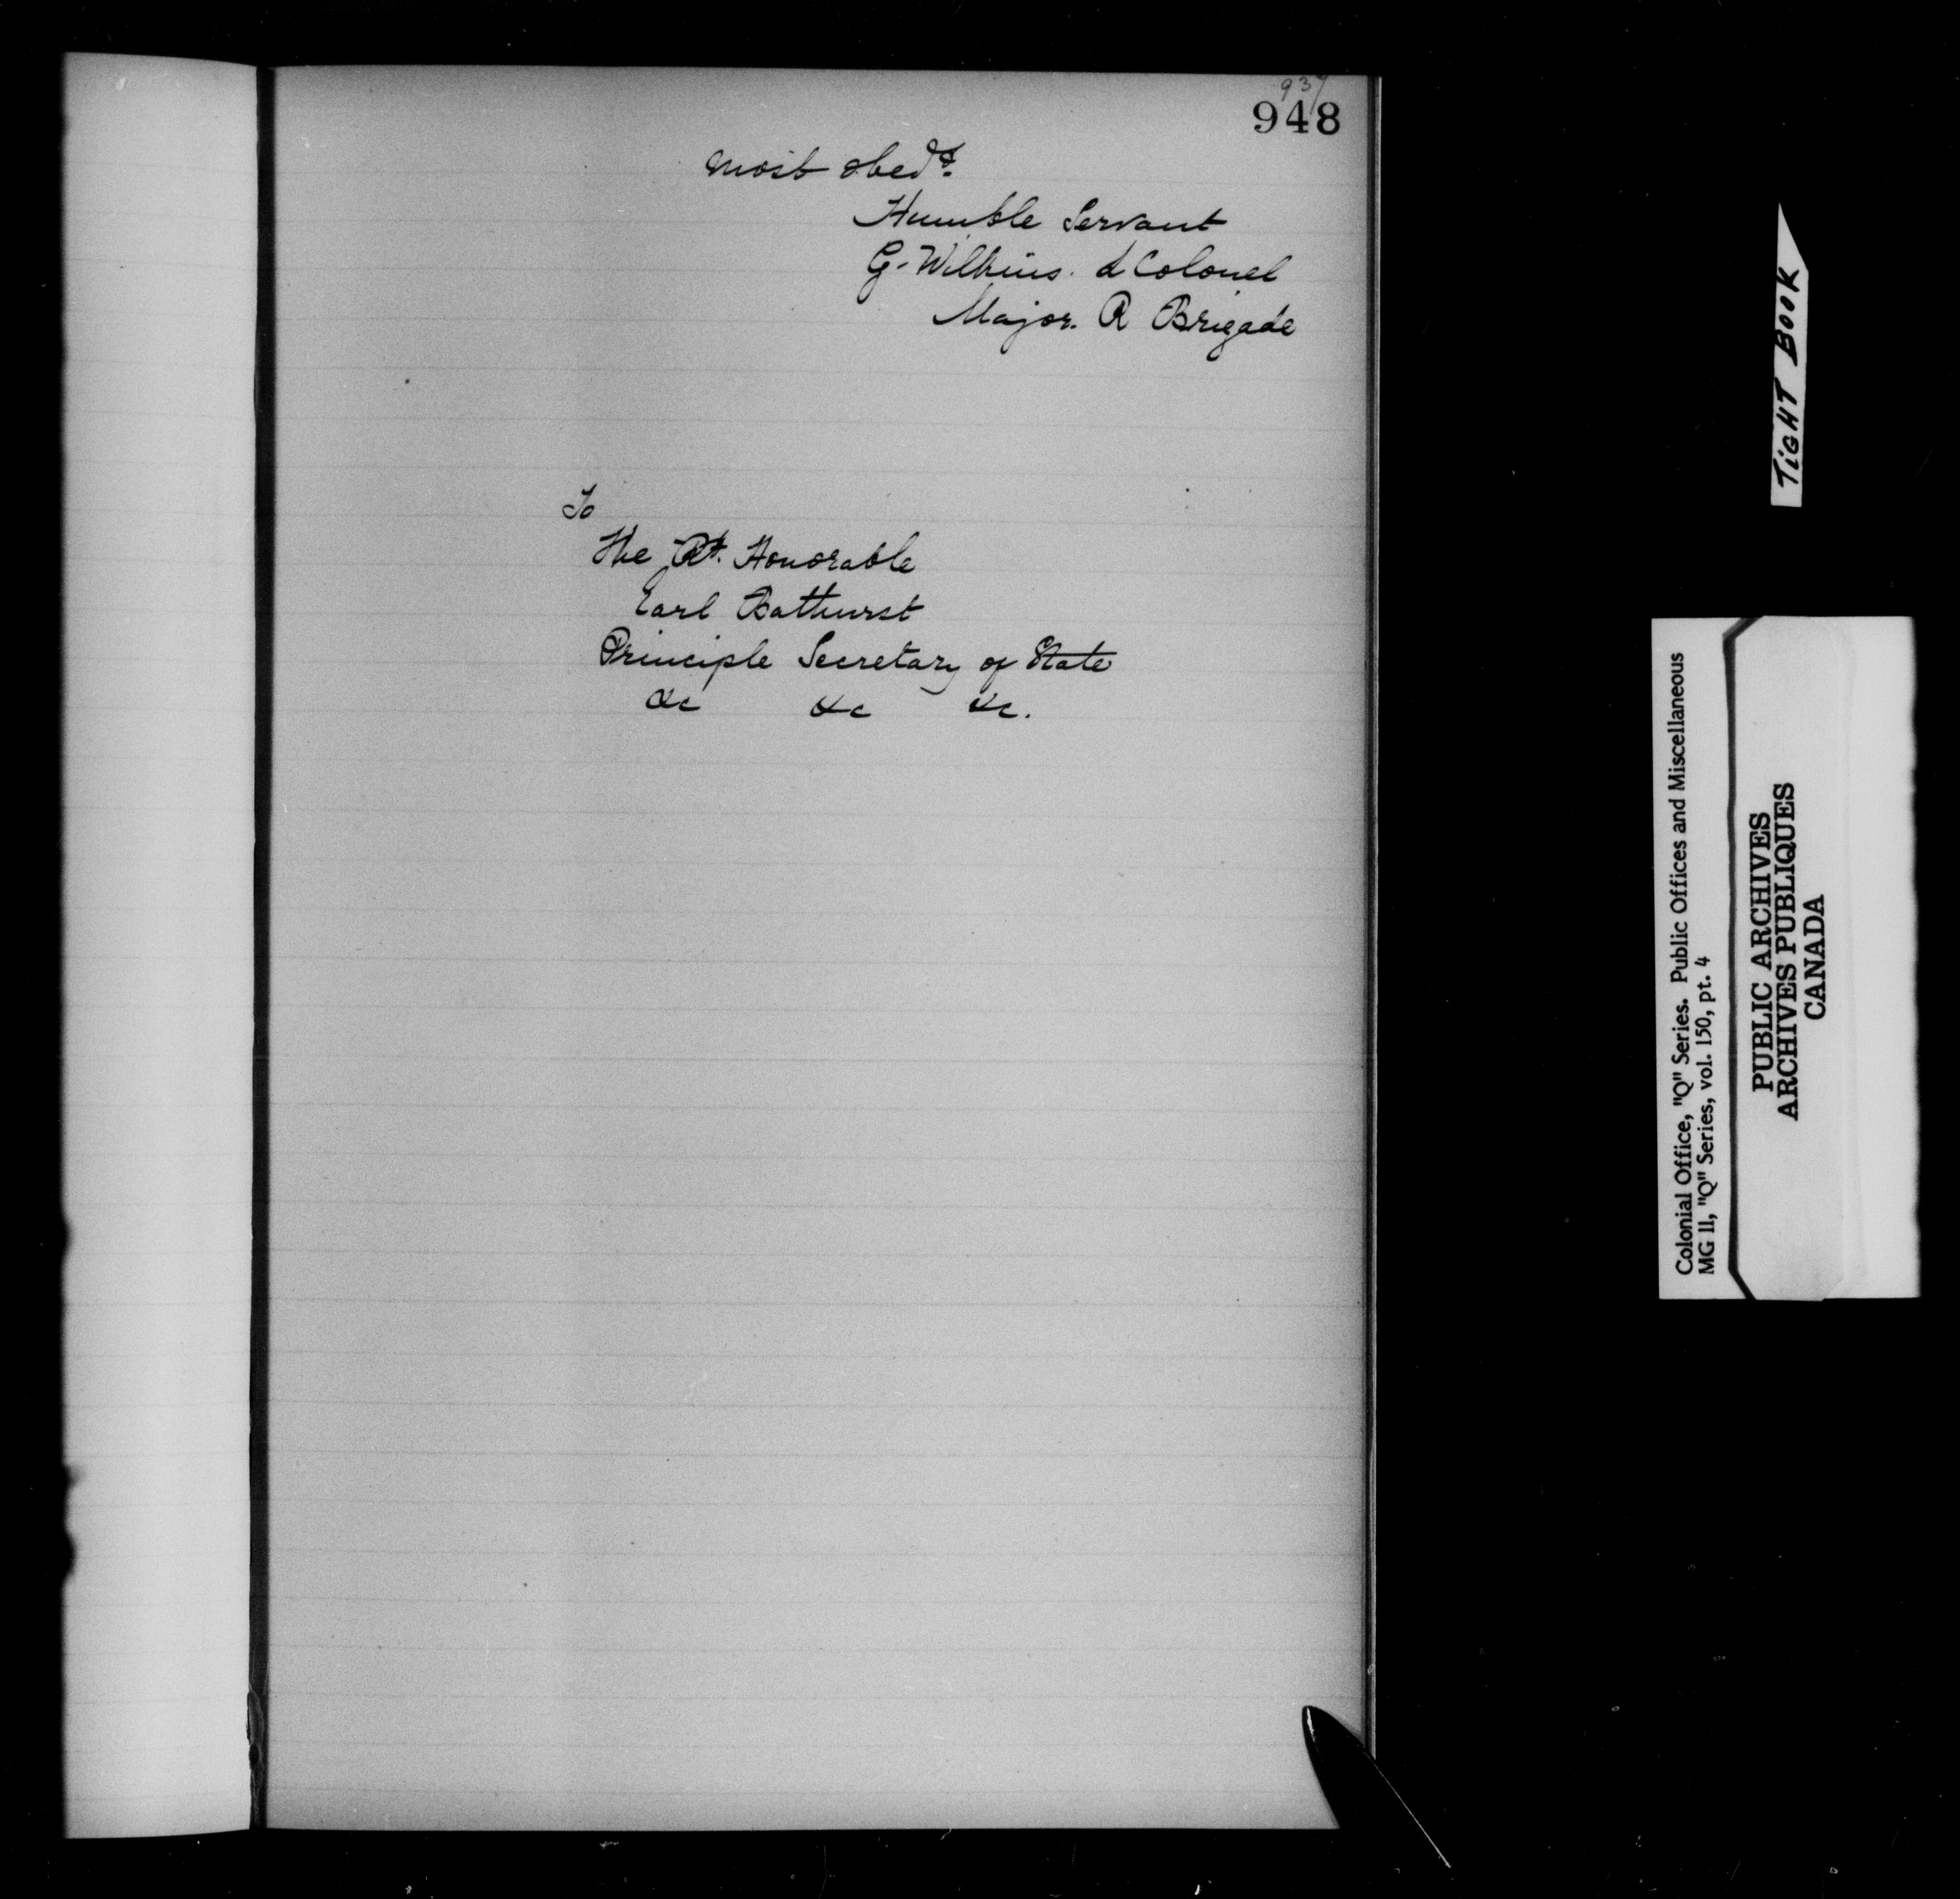 937
948
most obedt.
Humble Servant
G. Wilkins. L Colonel
Major. R Brigade
To
The Rt. Honorable
Earl Bathurst
Principle Secretary of State
&c &c &c.
TIGHT BOOK
Colonial Office, "Q" Series. Public Offices and Miscellaneous
MG 11, "Q" Series, vol. 150, pt. 4
PUBLIC ARCHIVES
ARCHIVES PUBLIQUES
CANADA